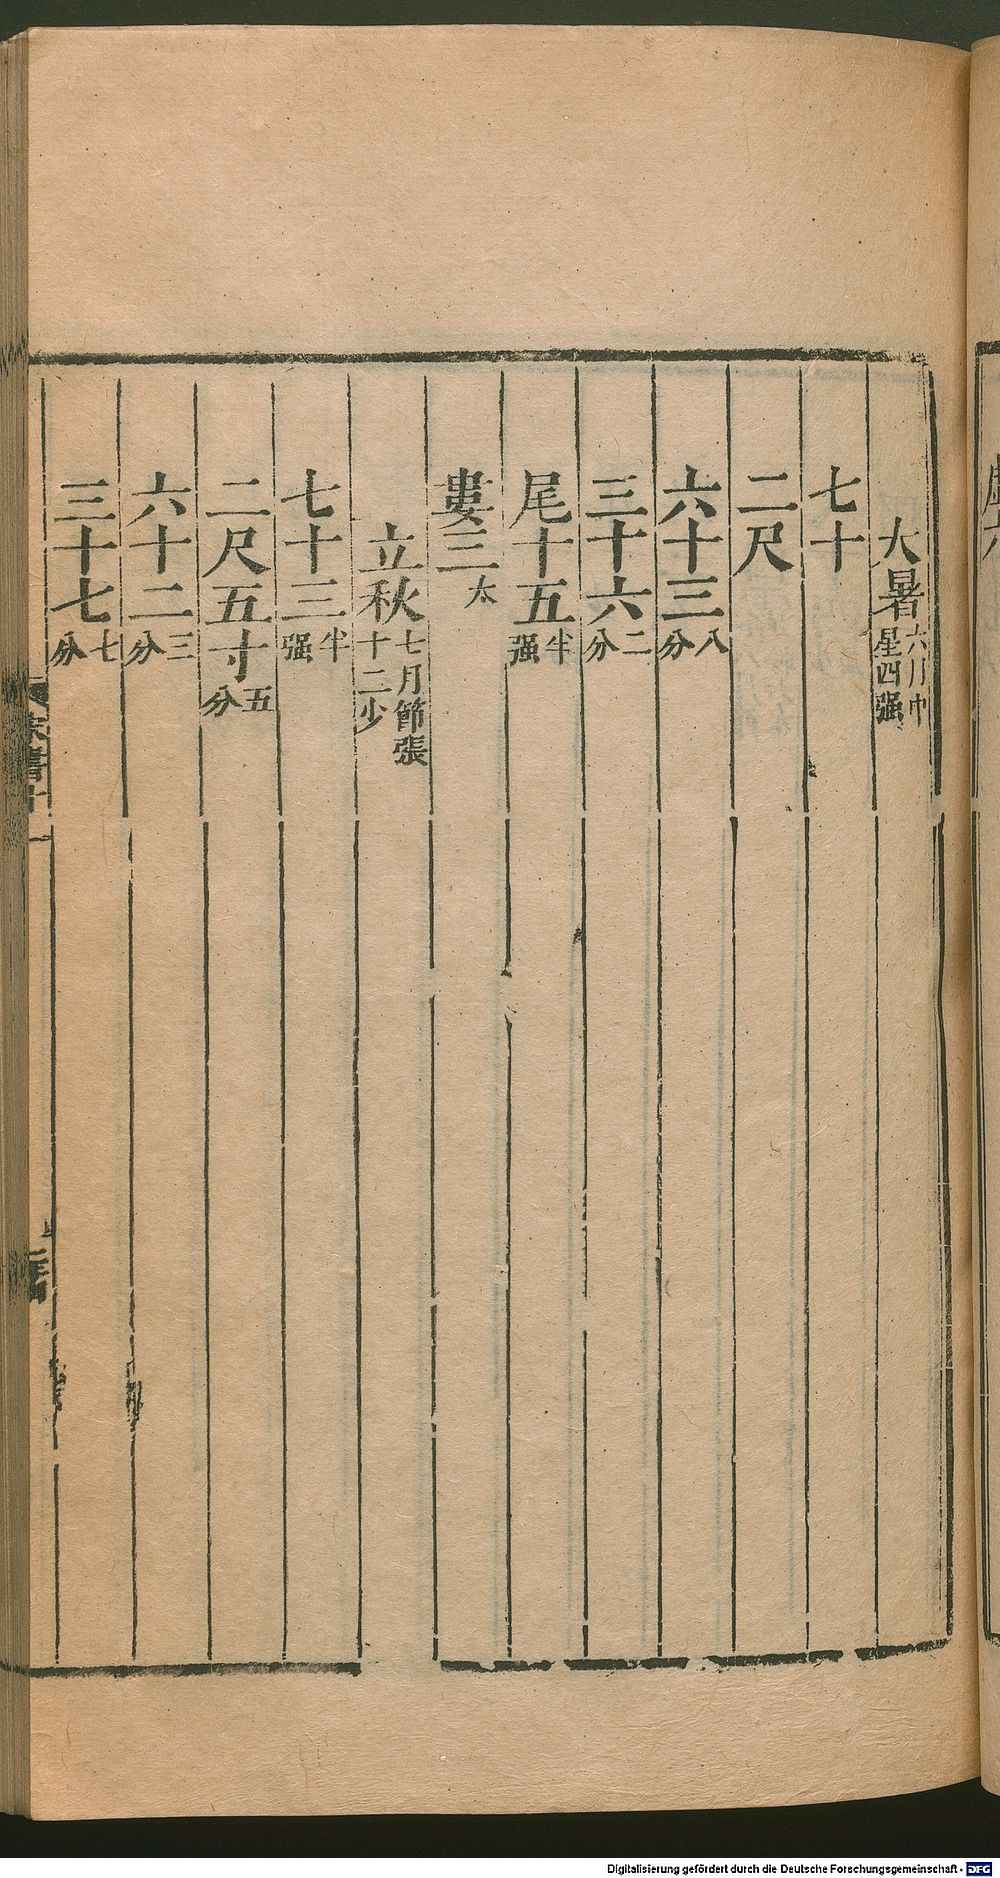 大暑六月中星四强
七十
二尺
六十三八分
三十六二分
尾十五半强
婁三太
立秋七月節張十二少
七十三半强
二尺五寸五分
六十二三分
三十七七分
Digitalisierung gefördert durch die Deutsche Forschungsgemeinschaft - DFG